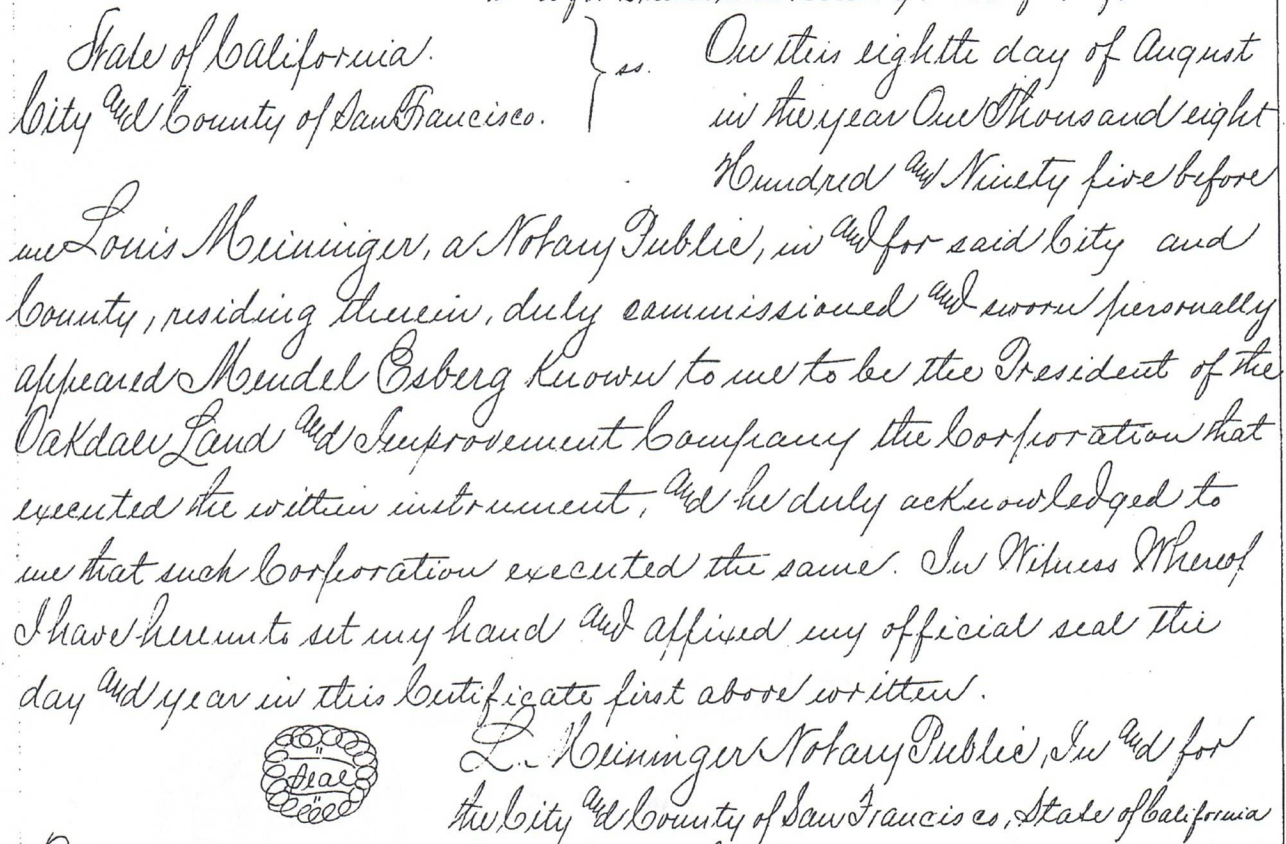 State of California.
City and County of San Francisco. } ss.
On this eighth day of August
in the year One Thousand eight
Hundred and Ninety five before
me Louis Meininger, a Notary Public, in and for said City and
County, residing therein, duly commissioned and sworn personally
appeared Mendel Esberg Known to me to be the President of the
Oakdale Land and Improvement Company the Corporation that
executed the within instrument, and he duly acknowledged to
me that such Corporation executed the same. In Witness Whereof
I have hereunto set my hand and affixed my official seal the
day and year in this Certificate first above written.
Seal
L. Meininger Notary Public, In and for
the City and County of San Francisco, State of California